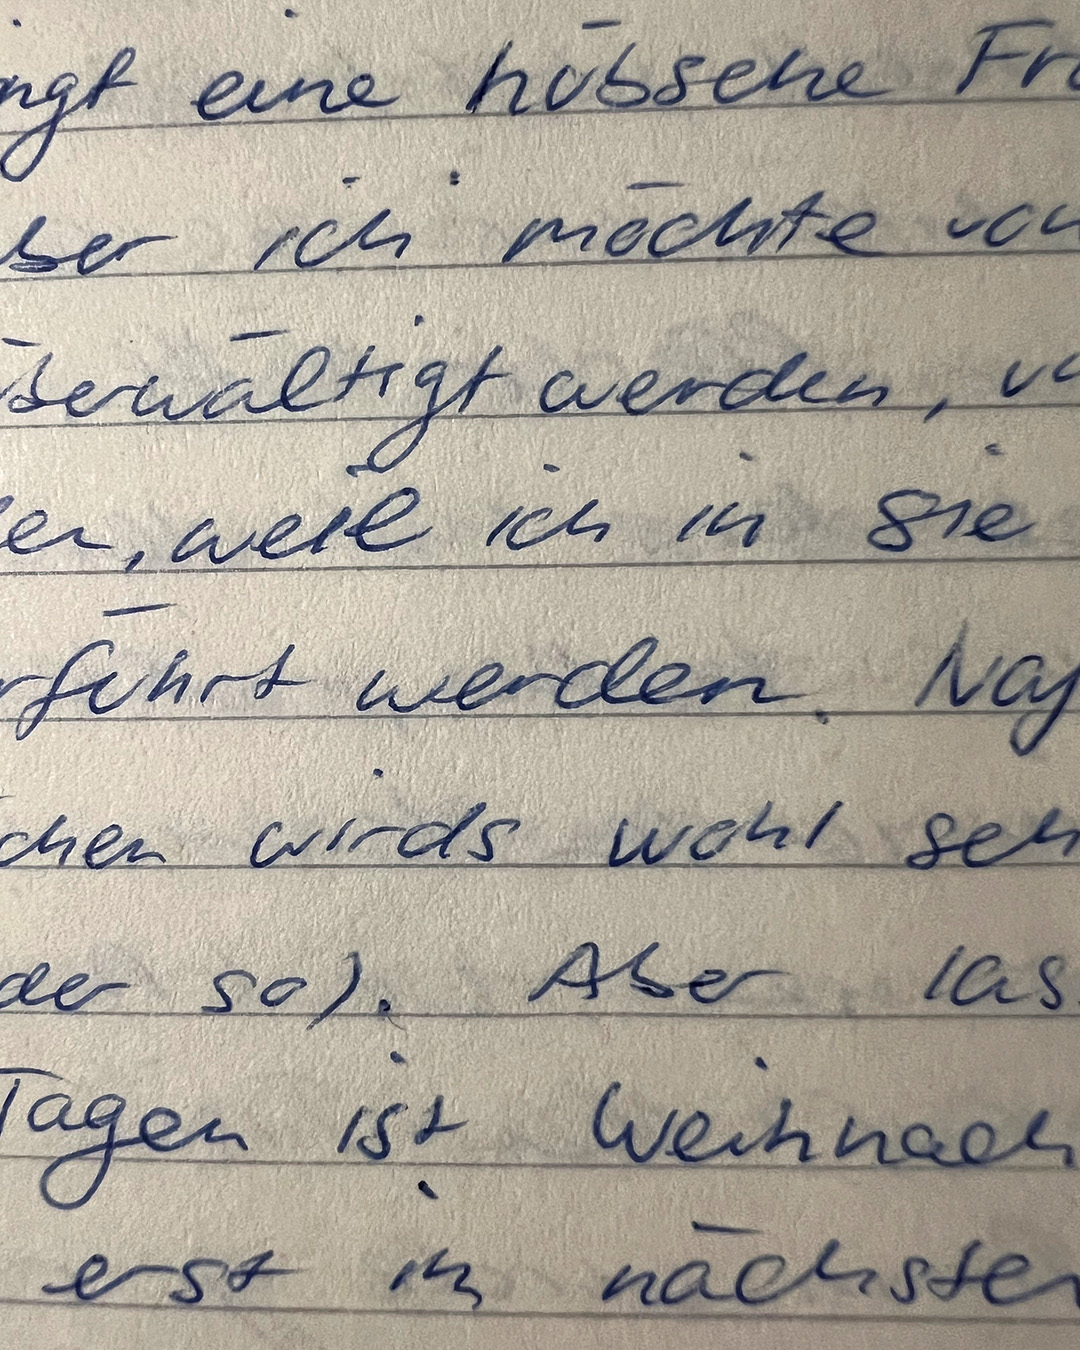 ngt eine hübsche Fra
ber ich möchte von
überwältigt werden, un
en, weil ich in Sie
rführt werden. Naj
chen wirds wohl seh
der so). Aber las
Tagen ist Weihnach
erst in nächsten